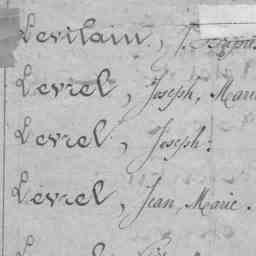 Levilain,
Levrel, Joseph, Marie
Levrel, Joseph.
Levrel, Jean, Marie.